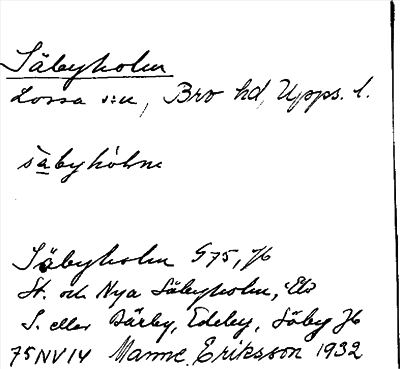 Säbyholm
Lossa s:n, Bro hd, Upps. l.
säbyhòlm
Säbyholm G75, Jb
St. och Nya Säbyholm, Ek
S. eller Därby, Edeby, Säby Jb
75NV14 Manne Eriksson 1932